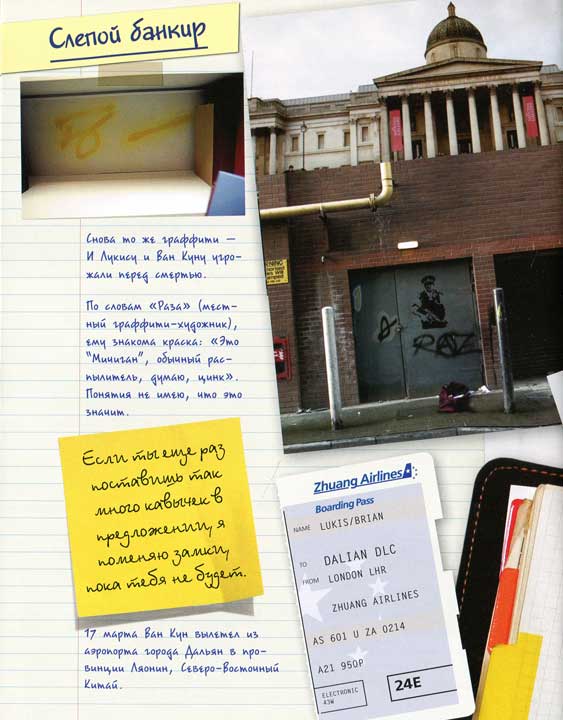 Слепой банкир
Снова то же граффити —
И Лукису и Ван Куну угро-
жали перед смертью.
По словам «Раза» (мест-
ный граффити-художник),
ему знакома краска: «Это
"Мичиган", обычный рас-
пылитель, думаю, цинк».
Понятия не имею, что это
значит.
RAZ
Если ты еще раз
поставишь так
много кавычек в
предложении, я
поменяю замки,
пока тебя не будет.
Zhuang Airlines
Boarding Pass
NAME LUKIS/BRIAN
TO DALIAN DLC
FROM LONDON LHR
ZHUANG AIRLINES
AS 601 U ZA 0214
A21 950P
ELECTRONIC
43W
24E
17 марта Ван Кун вылетел из
аэропорта города Дальян в про-
винции Ляонин, Северо-Восточный
Китай.